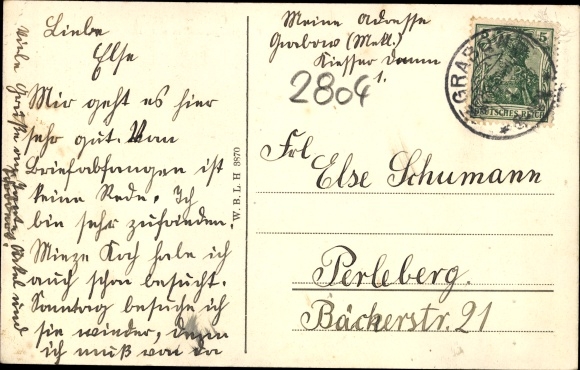 Liebe
Else
Mir geht es hier
sehr gut. Von
Briefabfangen ist
keine Rede. Ich
bin sehr zufrieden.
Mieze Koch habe ich
auch schon besucht.
Sonntag besuche ich
sie wieder, denn
ich muß von da
Viele Grüße an Onkel und
W. B. L. H 3870
Meine Adresse
Grabow (Meckl.)
Kiesser Damm
1.
2804
GRABOW
5
DEUTSCHES REICH
Frl
Else Schumann
Perleberg.
Bäckerstr. 21